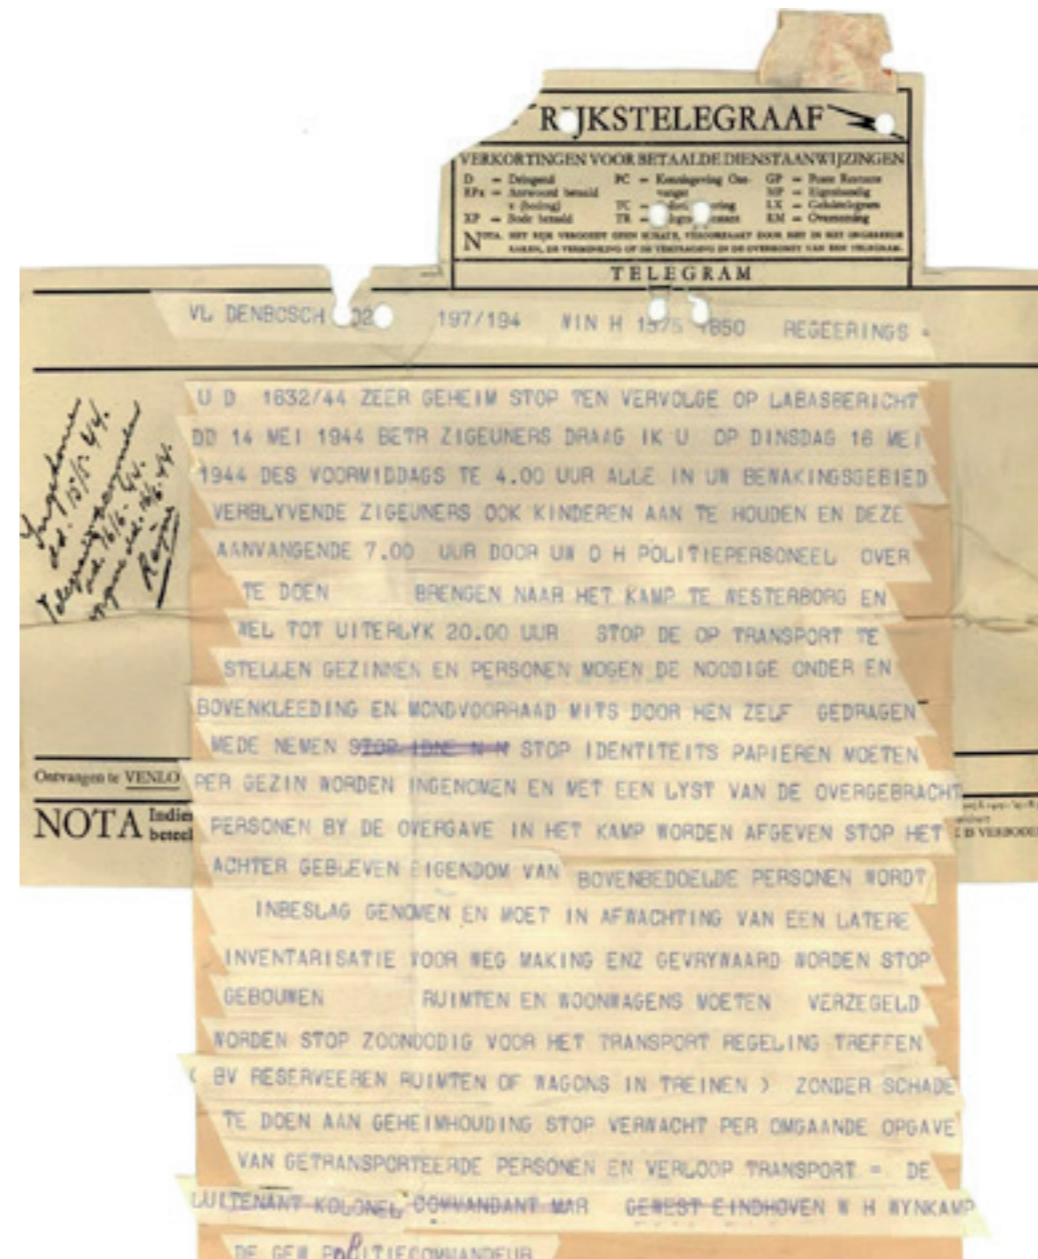 RIJKSTELEGRAAF
VERKORTINGEN VOOR BETAALDE DIENSTAANWIJZINGEN
D = Dringend
RPx = Antwoord betaald
x (bedrag)
XP = Bode betaald
PC = Kennisgeving Ont-
vangst
TC =
TR =
GP = Poste Restante
MP = Eigenhandig
LX = Gelukstelegram
RM = Overseining
NOTA. HET RIJK VERGOEDT GEEN SCHADE, VEROORZAAKT DOOR HET IN HET ONGEREEDE
RAKEN, DE VERMINKING OF DE VERTRAGING IN DE OVERKOMST VAN EEN TELEGRAM.
TELEGRAM
VL DENBOSCH 197/194 WIN H 1575 1850 REGEERINGS =
U D 1632/44 ZEER GEHEIM STOP TEN VERVOLGE OP LABASBERICHT
DD 14 MEI 1944 BETR ZIGEUNERS DRAAG IK U OP DINSDAG 16 MEI
1944 DES VOORMIDDAGS TE 4.00 UUR ALLE IN UW BEWAKINGSGEBIED
VERBLYVENDE ZIGEUNERS OOK KINDEREN AAN TE HOUDEN EN DEZE
AANVANGENDE 7.00 UUR DOOR UW O H POLITIEPERSONEEL OVER
TE DOEN BRENGEN NAAR HET KAMP TE WESTERBORG EN
WEL TOT UITERLYK 20.00 UUR STOP DE OP TRANSPORT TE
STELLEN GEZINNEN EN PERSONEN MOGEN DE NOODIGE ONDER EN
BOVENKLEEDING EN MONDVOORRAAD MITS DOOR HEN ZELF GEDRAGEN
MEDE NEMEN STOP IDNE N N STOP IDENTITEITS PAPIEREN MOETEN
PER GEZIN WORDEN INGENOMEN EN MET EEN LYST VAN DE OVERGEBRACHT
PERSONEN BY DE OVERGAVE IN HET KAMP WORDEN AFGEVEN STOP HET
ACHTER GEBLEVEN EIGENDOM VAN BOVENBEDOELDE PERSONEN WORDT
INBESLAG GENOMEN EN MOET IN AFWACHTING VAN EEN LATERE
INVENTARISATIE VOOR WEG MAKING ENZ GEVRYWAARD WORDEN STOP
GEBOUWEN RUIMTEN EN WOONWAGENS MOETEN VERZEGELD
WORDEN STOP ZOONOODIG VOOR HET TRANSPORT REGELING TREFFEN
( BV RESERVEEREN RUIMTEN OF WAGONS IN TREINEN ) ZONDER SCHADE
TE DOEN AAN GEHEIMHOUDING STOP VERWACHT PER OMGAANDE OPGAVE
VAN GETRANSPORTEERDE PERSONEN EN VERLOOP TRANSPORT = DE
LUITENANT KOLONEL COMMANDANT MAR GEWEST EINDHOVEN W H WYNKAMP
DE GEW POLITIECOMMANDEUR
Ontvangen te VENLO
NOTA Indien